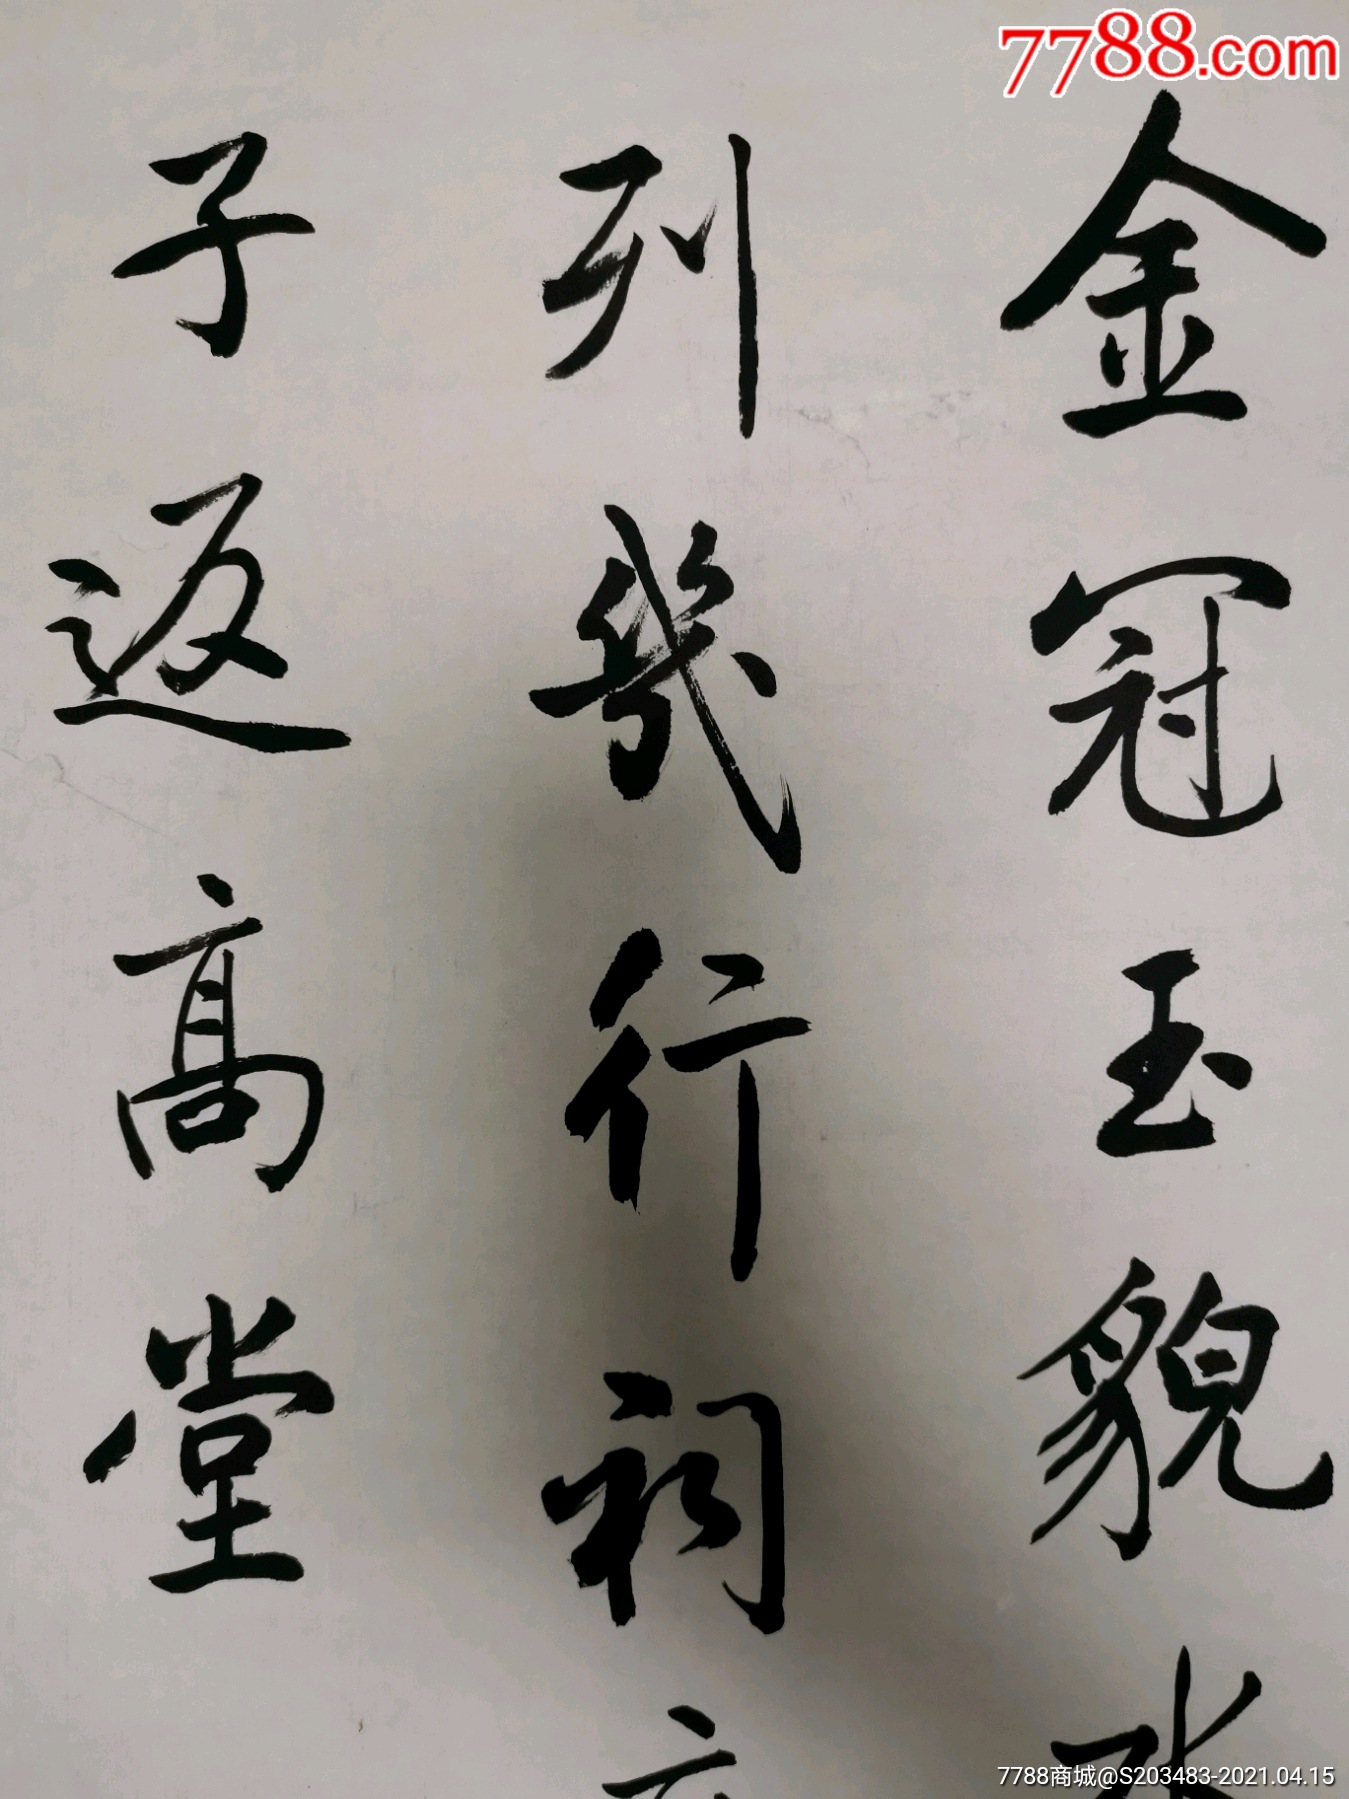 7788.com
金冠玉貌
列幾行祠
子返高堂
7788商城@S203483-2021.04.15